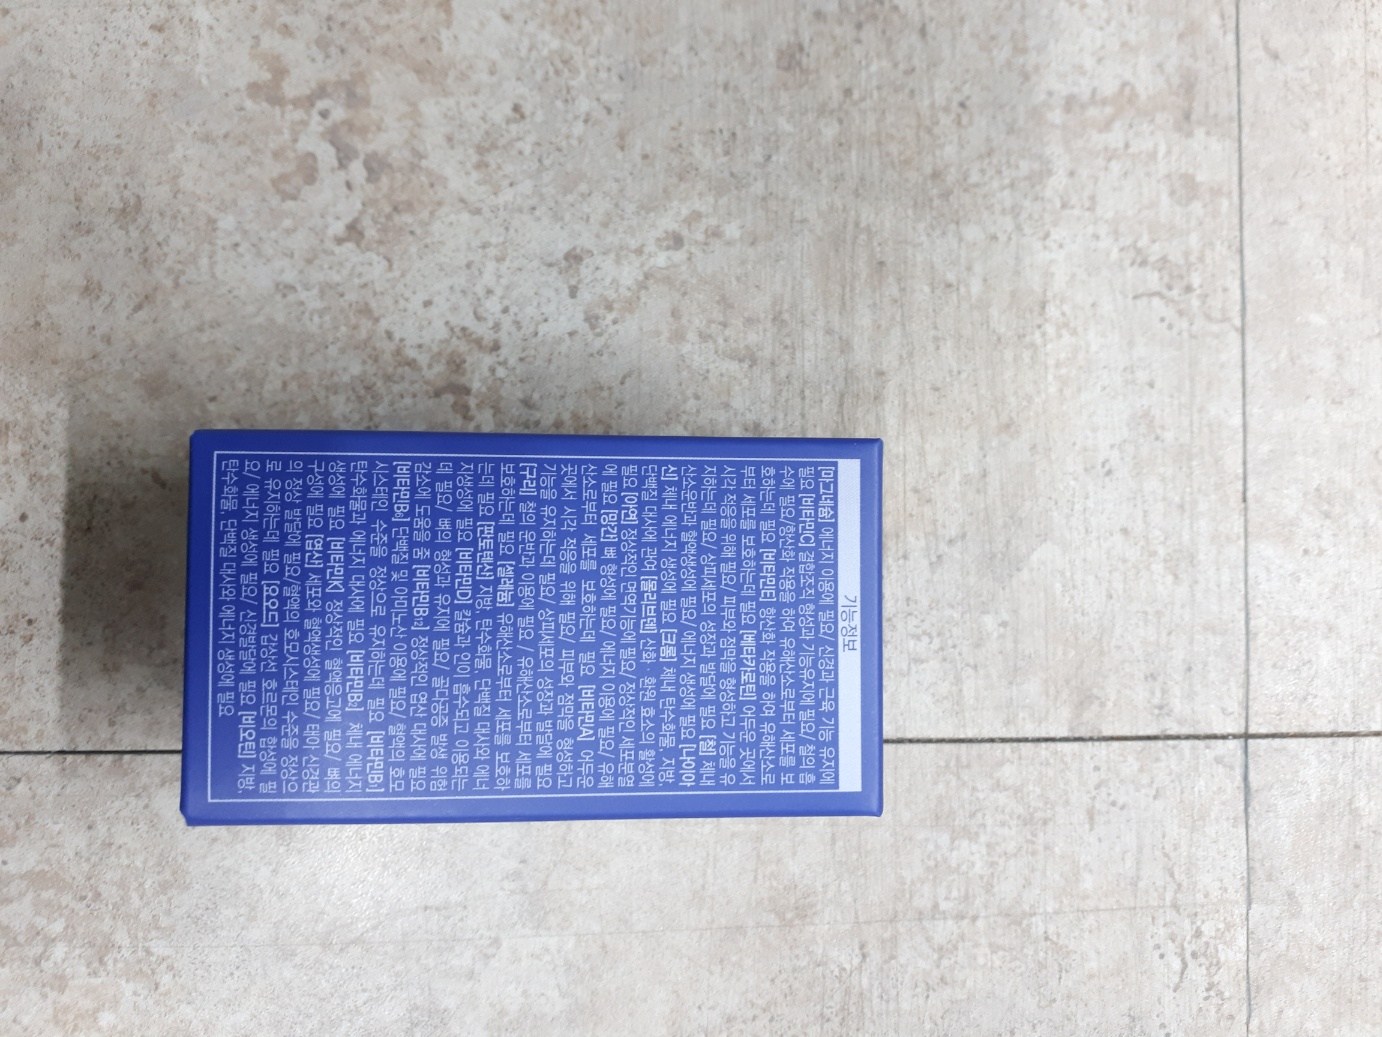 기능정보
[마그네슘] 에너지 이용에 필요, 신경과 근육 기능 유지에
필요 [비타민C] 결합조직 형성과 기능유지에 필요/ 철의 흡
수에 필요/항산화 작용을 하여 유해산소로부터 세포를 보
호하는데 필요 [비타민E] 항산화 작용을 하여 유해산소로
부터 세포를 보호하는데 필요 [베타카로틴] 어두운 곳에서
시각 적응을 위해 필요/ 피부와 점막을 형성하고 기능을 유
지하는데 필요/ 상피세포의 성장과 발달에 필요 [철] 체내
산소운반과 혈액생성에 필요/ 에너지 생성에 필요 [나이아
신] 체내 에너지 생성에 필요 [크롬] 체내 탄수화물, 지방,
단백질 대사에 관여 [몰리브덴] 산화·환원 효소의 활성에
필요 [아연] 정상적인 면역기능에 필요/ 정상적인 세포분열
에 필요 [망간] 뼈 형성에 필요/ 에너지 이용에 필요/ 유해
산소로부터 세포를 보호하는데 필요 [비타민A] 어두운
곳에서 시각 적응을 위해 필요/ 피부와 점막을 형성하고
기능을 유지하는데 필요/ 상피세포의 성장과 발달에 필요
[구리] 철의 운반과 이용에 필요 / 유해산소로부터 세포를
보호하는데 필요 [셀레늄] 유해산소로부터 세포를 보호하
는데 필요 [판토텐산] 지방, 탄수화물, 단백질 대사와 에너
지생성에 필요 [비타민D] 칼슘과 인이 흡수되고 이용되는
데 필요/ 뼈의 형성과 유지에 필요/ 골다공증 발생 위험
감소에 도움을 줌 [비타민B₁₂] 정상적인 엽산 대사에 필요
[비타민B₆] 단백질 및 아미노산 이용에 필요/ 혈액의 호모
시스테인 수준을 정상으로 유지하는데 필요 [비타민B₁]
탄수화물과 에너지 대사에 필요 [비타민B₂] 체내 에너지
생성에 필요 [비타민K] 정상적인 혈액응고에 필요/ 뼈의
구성에 필요 [엽산] 세포와 혈액생성에 필요/ 태아 신경관
의 정상 발달에 필요/혈액의 호모시스테인 수준을 정상으
로 유지하는데 필요 [요오드] 갑상선 호르몬의 합성에 필
요/ 에너지 생성에 필요/ 신경발달에 필요 [비오틴] 지방,
탄수화물, 단백질 대사와 에너지 생성에 필요